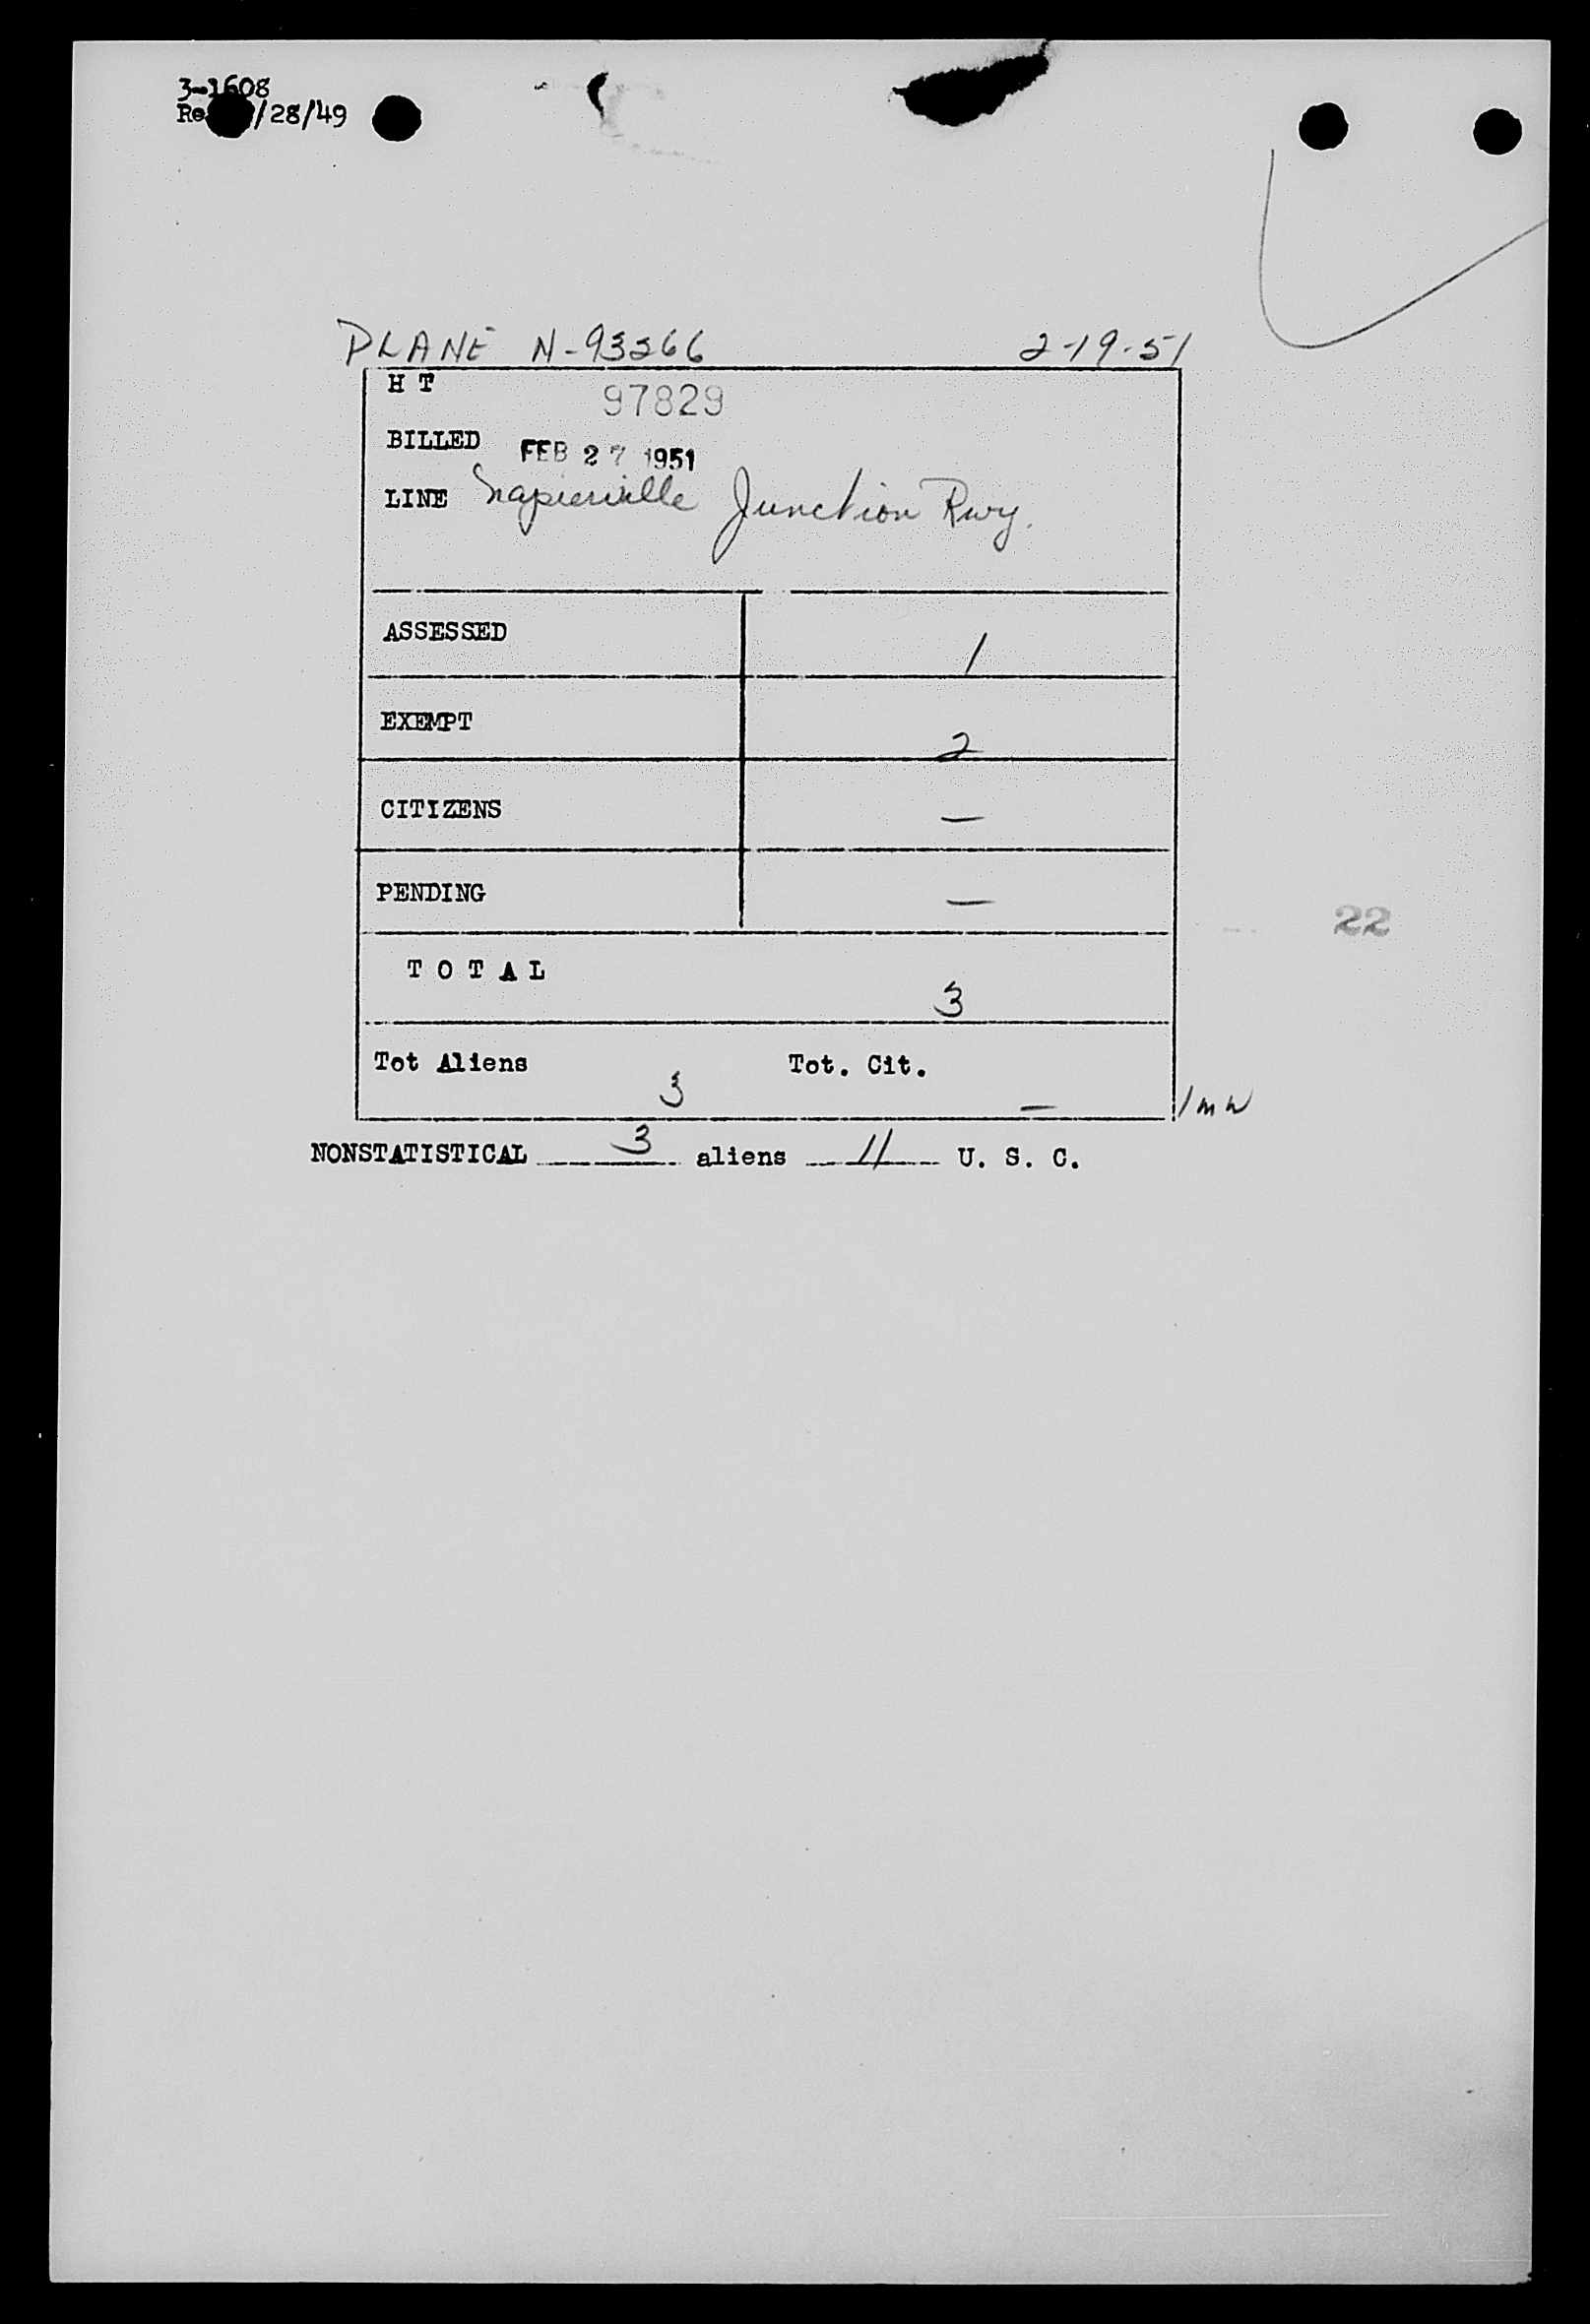 3-1608
Re /28/49
PLANE N-93266 2-19-51
H T 97829
BILLED FEB 27 1951
LINE Napierville Junction Rwy.
ASSESSED 1
EXEMPT 2
CITIZENS —
PENDING —
22
T O T A L 3
Tot Aliens 3 Tot. Cit. —
NONSTATISTICAL 3 aliens 11 U. S. C.